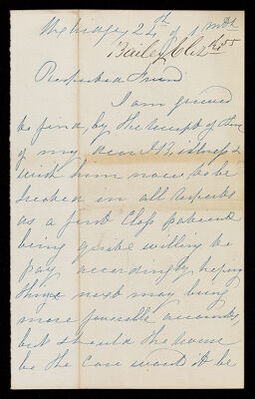 Uxbridge 24th of 1 mth
Bailey Clerk 55
Respected Friend
I am grieved
to find, by the receipt of thine
of my dear Bro illness
wish him now to be
treated in all respects
as a first Class patient
being quite willing to
pay accordingly hoping
thine next may bring
more favorable accounts,
but should the same
be the case would it be